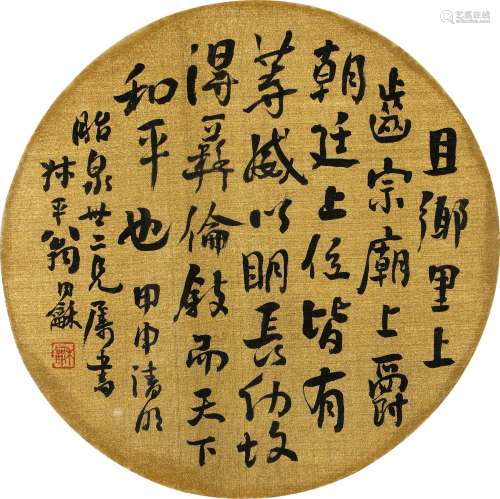 且鄉里上
齒宗廟上爵
朝廷上位皆有
等威以明長幼故
得彝倫敘而天下
和平也 甲申清明
泉世二兄属書
叔平翁同龢